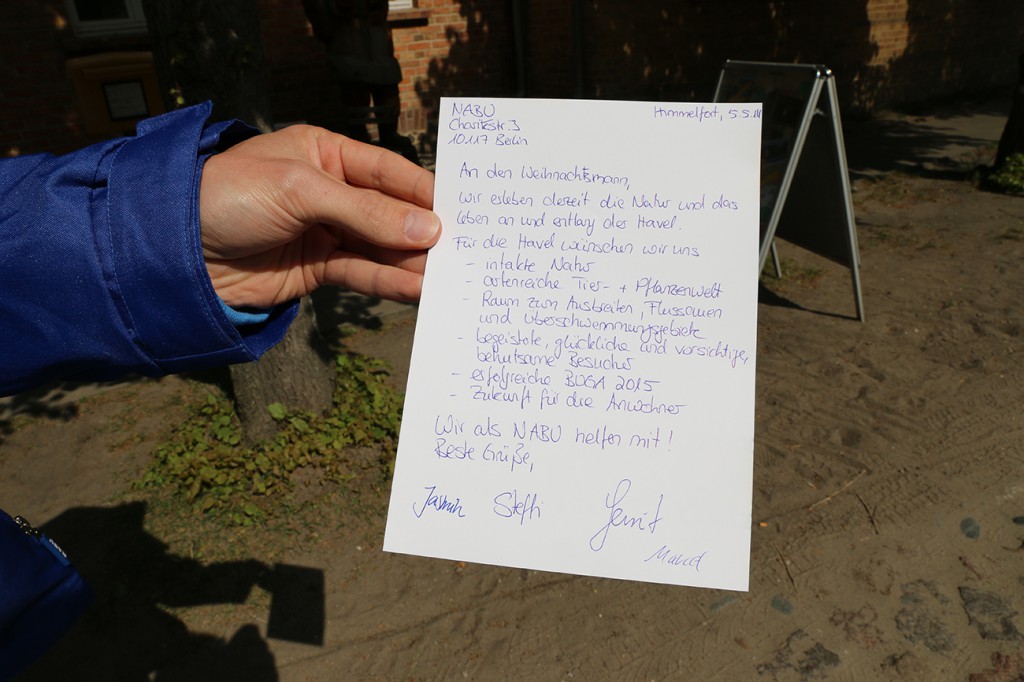 NABU
Charitéstr. 3
10117 Berlin
Himmelfort, 5.5.14
An den Weihnachtsmann,
wir erleben derzeit die Natur und das
leben an und entlang der Havel.
Für die Havel wünschen wir uns
- intakte Natur
- artenreiche Tier- + Pflanzenwelt
- Raum zum Ausbreiten, Flussauen
und Überschwemmungsgebiete
- begeisterte, glückliche und vorsichtige,
behutsame Besucher
- erfolgreiche BUGA 2015
- Zukunft für die Anwohner
Wir als NABU helfen mit!
Beste Grüße,
Jasmin Steffi Gerrit